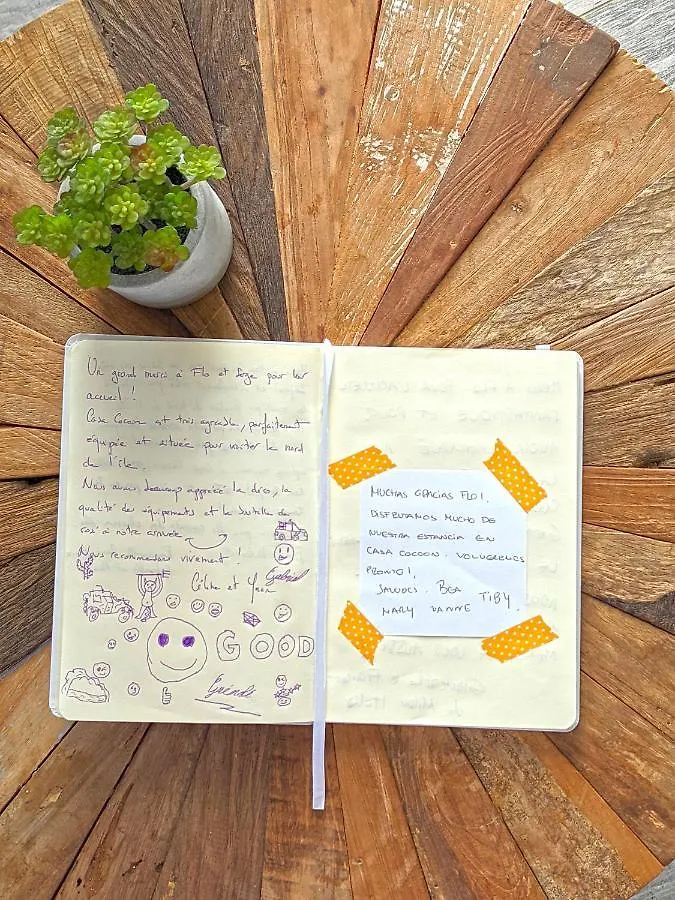 Un grand merci à Flo et Serge pour leur
accueil !
Casa Cocoon est très agréable, parfaitement
équipée et située pour visiter le nord
de l'île.
Nous avons beaucoup apprécié la déco, la
qualité des équipements et la bouteille de
rosé à notre arrivée
Nous recommandons vivement !
Gabriel
Céline et Yann
GOOD
MUCHAS GRACIAS FLO!,
DISFRUTAMOS MUCHO DE
NUESTRA ESTANCIA EN
CASA COCOON. VOLVEREMOS
PRONTO!,
SALUDOS. BEA TIBY,
MARY DANNE